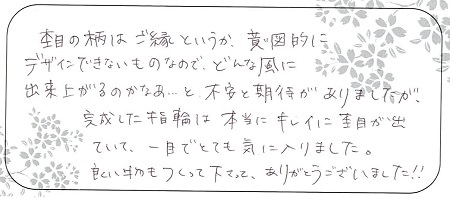 杢目の柄はご縁というか、意図的に
デザインできないものなので、どんな風に
出来上がるのかなあ…と、不安と期待がありましたが、
完成した指輪は本当にキレイに杢目が出
ていて、一目でとても気に入りました。
良い物をつくって下さって、ありがとうございました!!